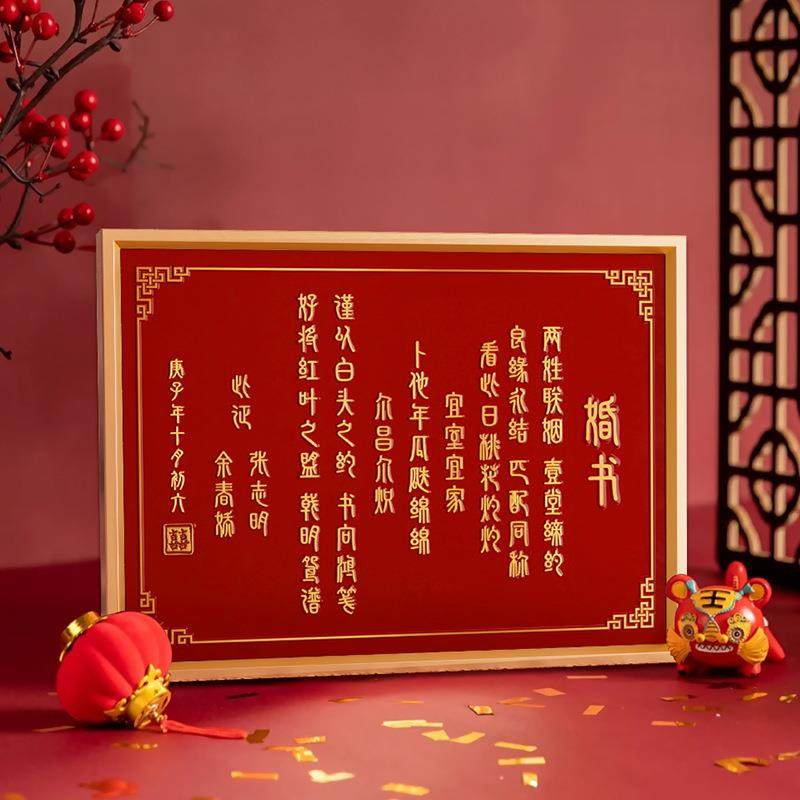 婚书
两姓联姻 壹堂缔约
良缘永结 匹配同称
看此日桃花灼灼
宜室宜家
卜他年瓜瓞绵绵
尔昌尔炽
谨以白头之约 书向鸿笺
好将红叶之盟 载明鸳谱
此证
张志明
余春娇
庚子年十月初六
囍
士